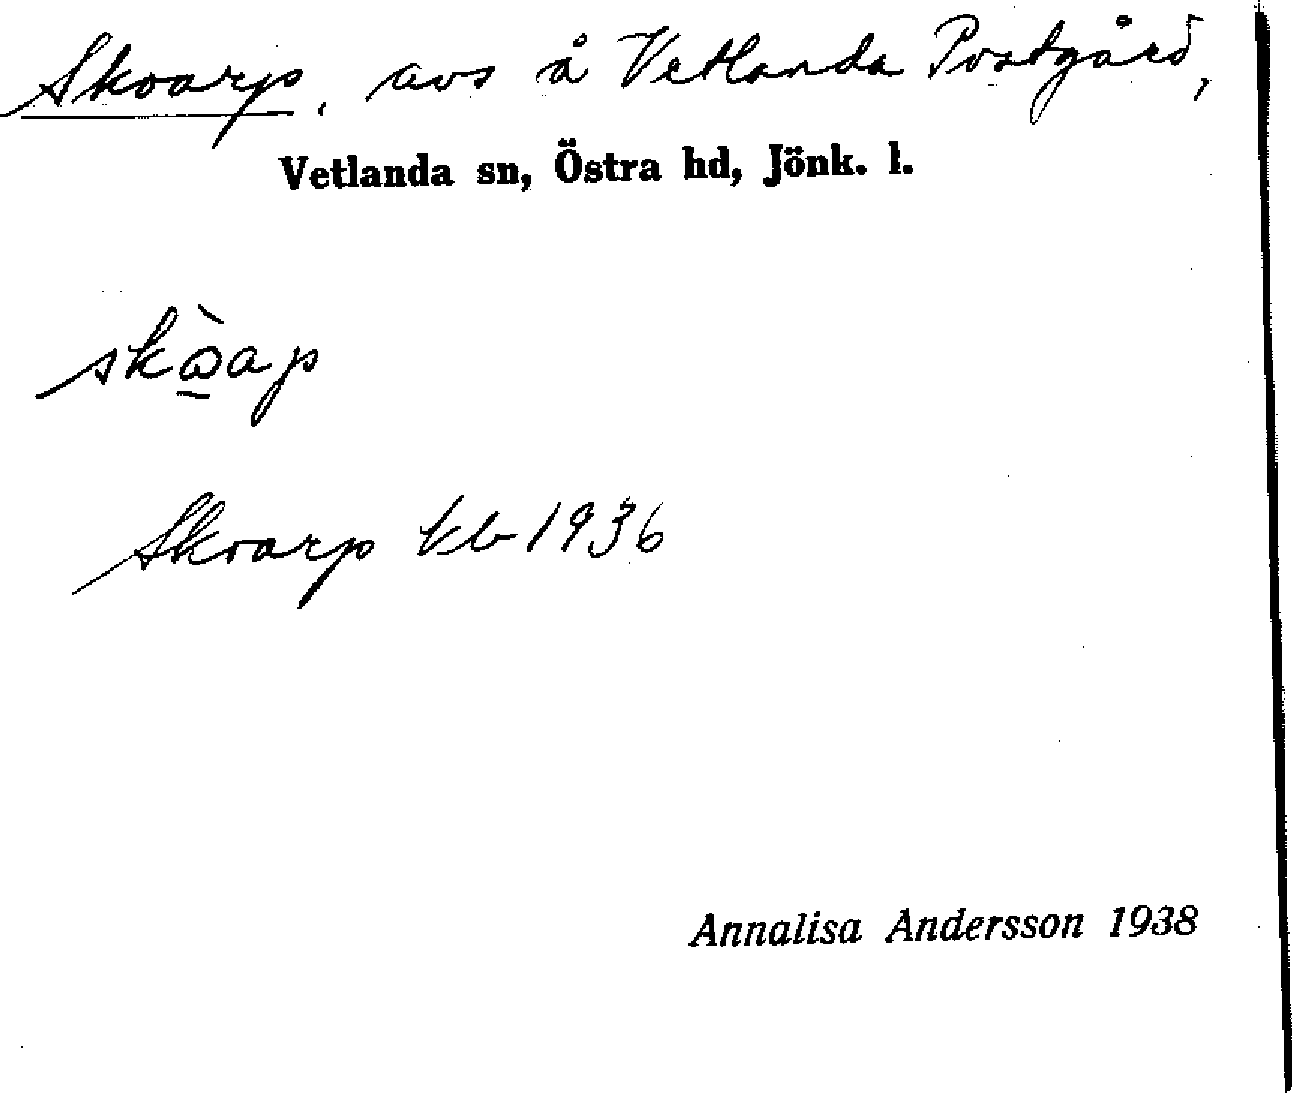 Skoarp, avs å Vetlanda Postgård,
Vetlanda sn, Östra hd, Jönk. l.
Skoarp kb 1936
Annalisa Andersson 1938